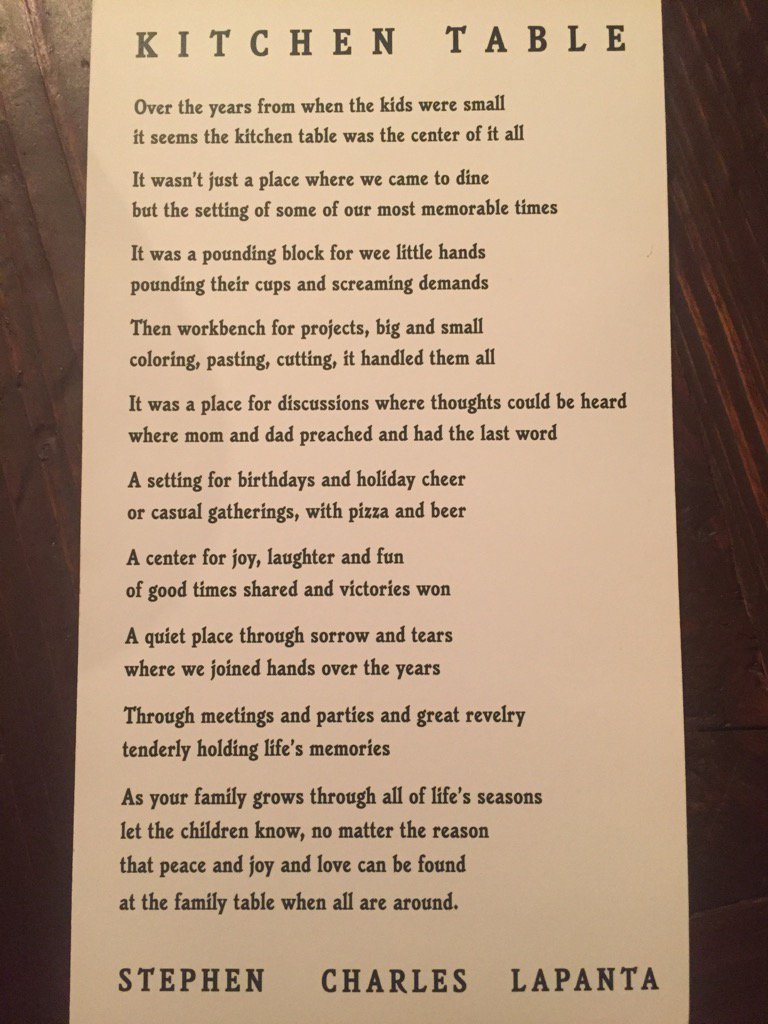 KITCHEN TABLE
Over the years from when the kids were small
it seems the kitchen table was the center of it all
It wasn't just a place where we came to dine
but the setting of some of our most memorable times
It was a pounding block for wee little hands
pounding their cups and screaming demands
Then workbench for projects, big and small
coloring, pasting, cutting, it handled them all
It was a place for discussions where thoughts could be heard
where mom and dad preached and had the last word
A setting for birthdays and holiday cheer
or casual gatherings, with pizza and beer
A center for joy, laughter and fun
of good times shared and victories won
A quiet place through sorrow and tears
where we joined hands over the years
Through meetings and parties and great revelry
tenderly holding life's memories
As your family grows through all of life's seasons
let the children know, no matter the reason
that peace and joy and love can be found
at the family table when all are around.
STEPHEN CHARLES LAPANTA